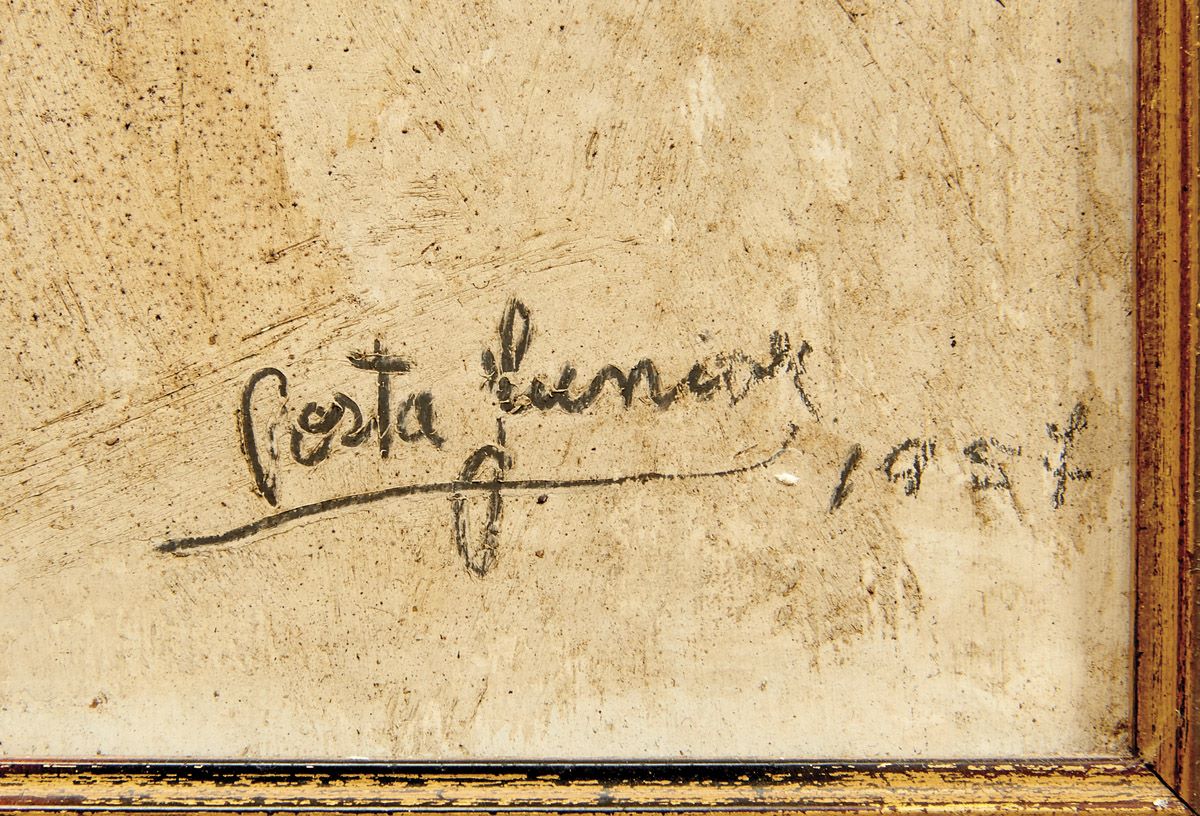 Costa Junior 1957